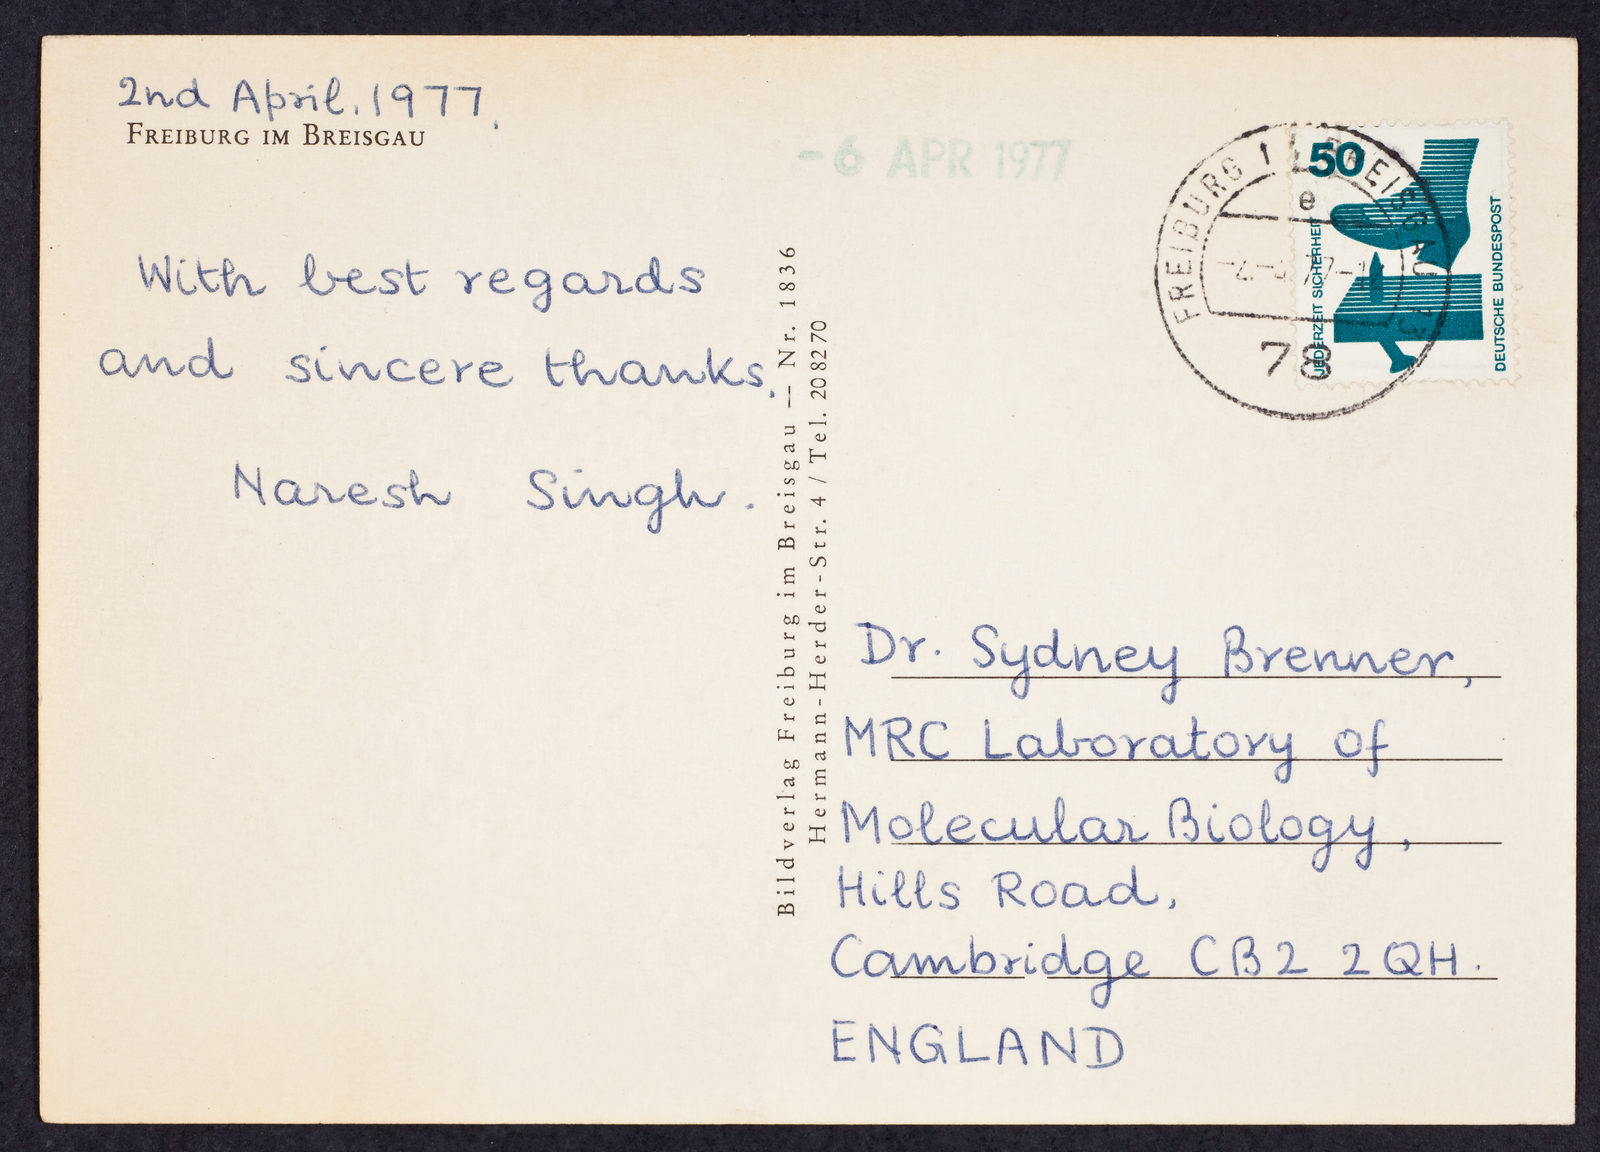 2nd April, 1977.
FREIBURG IM BREISGAU
With best regards
and sincere thanks.
Naresh Singh.
Bildverlag Freiburg im Breisgau — Nr. 1836
Hermann-Herder-Str. 4 / Tel. 208270
-6 APR 1977
FREIBURG BREISGAU
e
78
50
JEDERZEIT SICHERHEIT
DEUTSCHE BUNDESPOST
Dr. Sydney Brenner,
MRC Laboratory of
Molecular Biology,
Hills Road,
Cambridge CB2 2QH.
ENGLAND